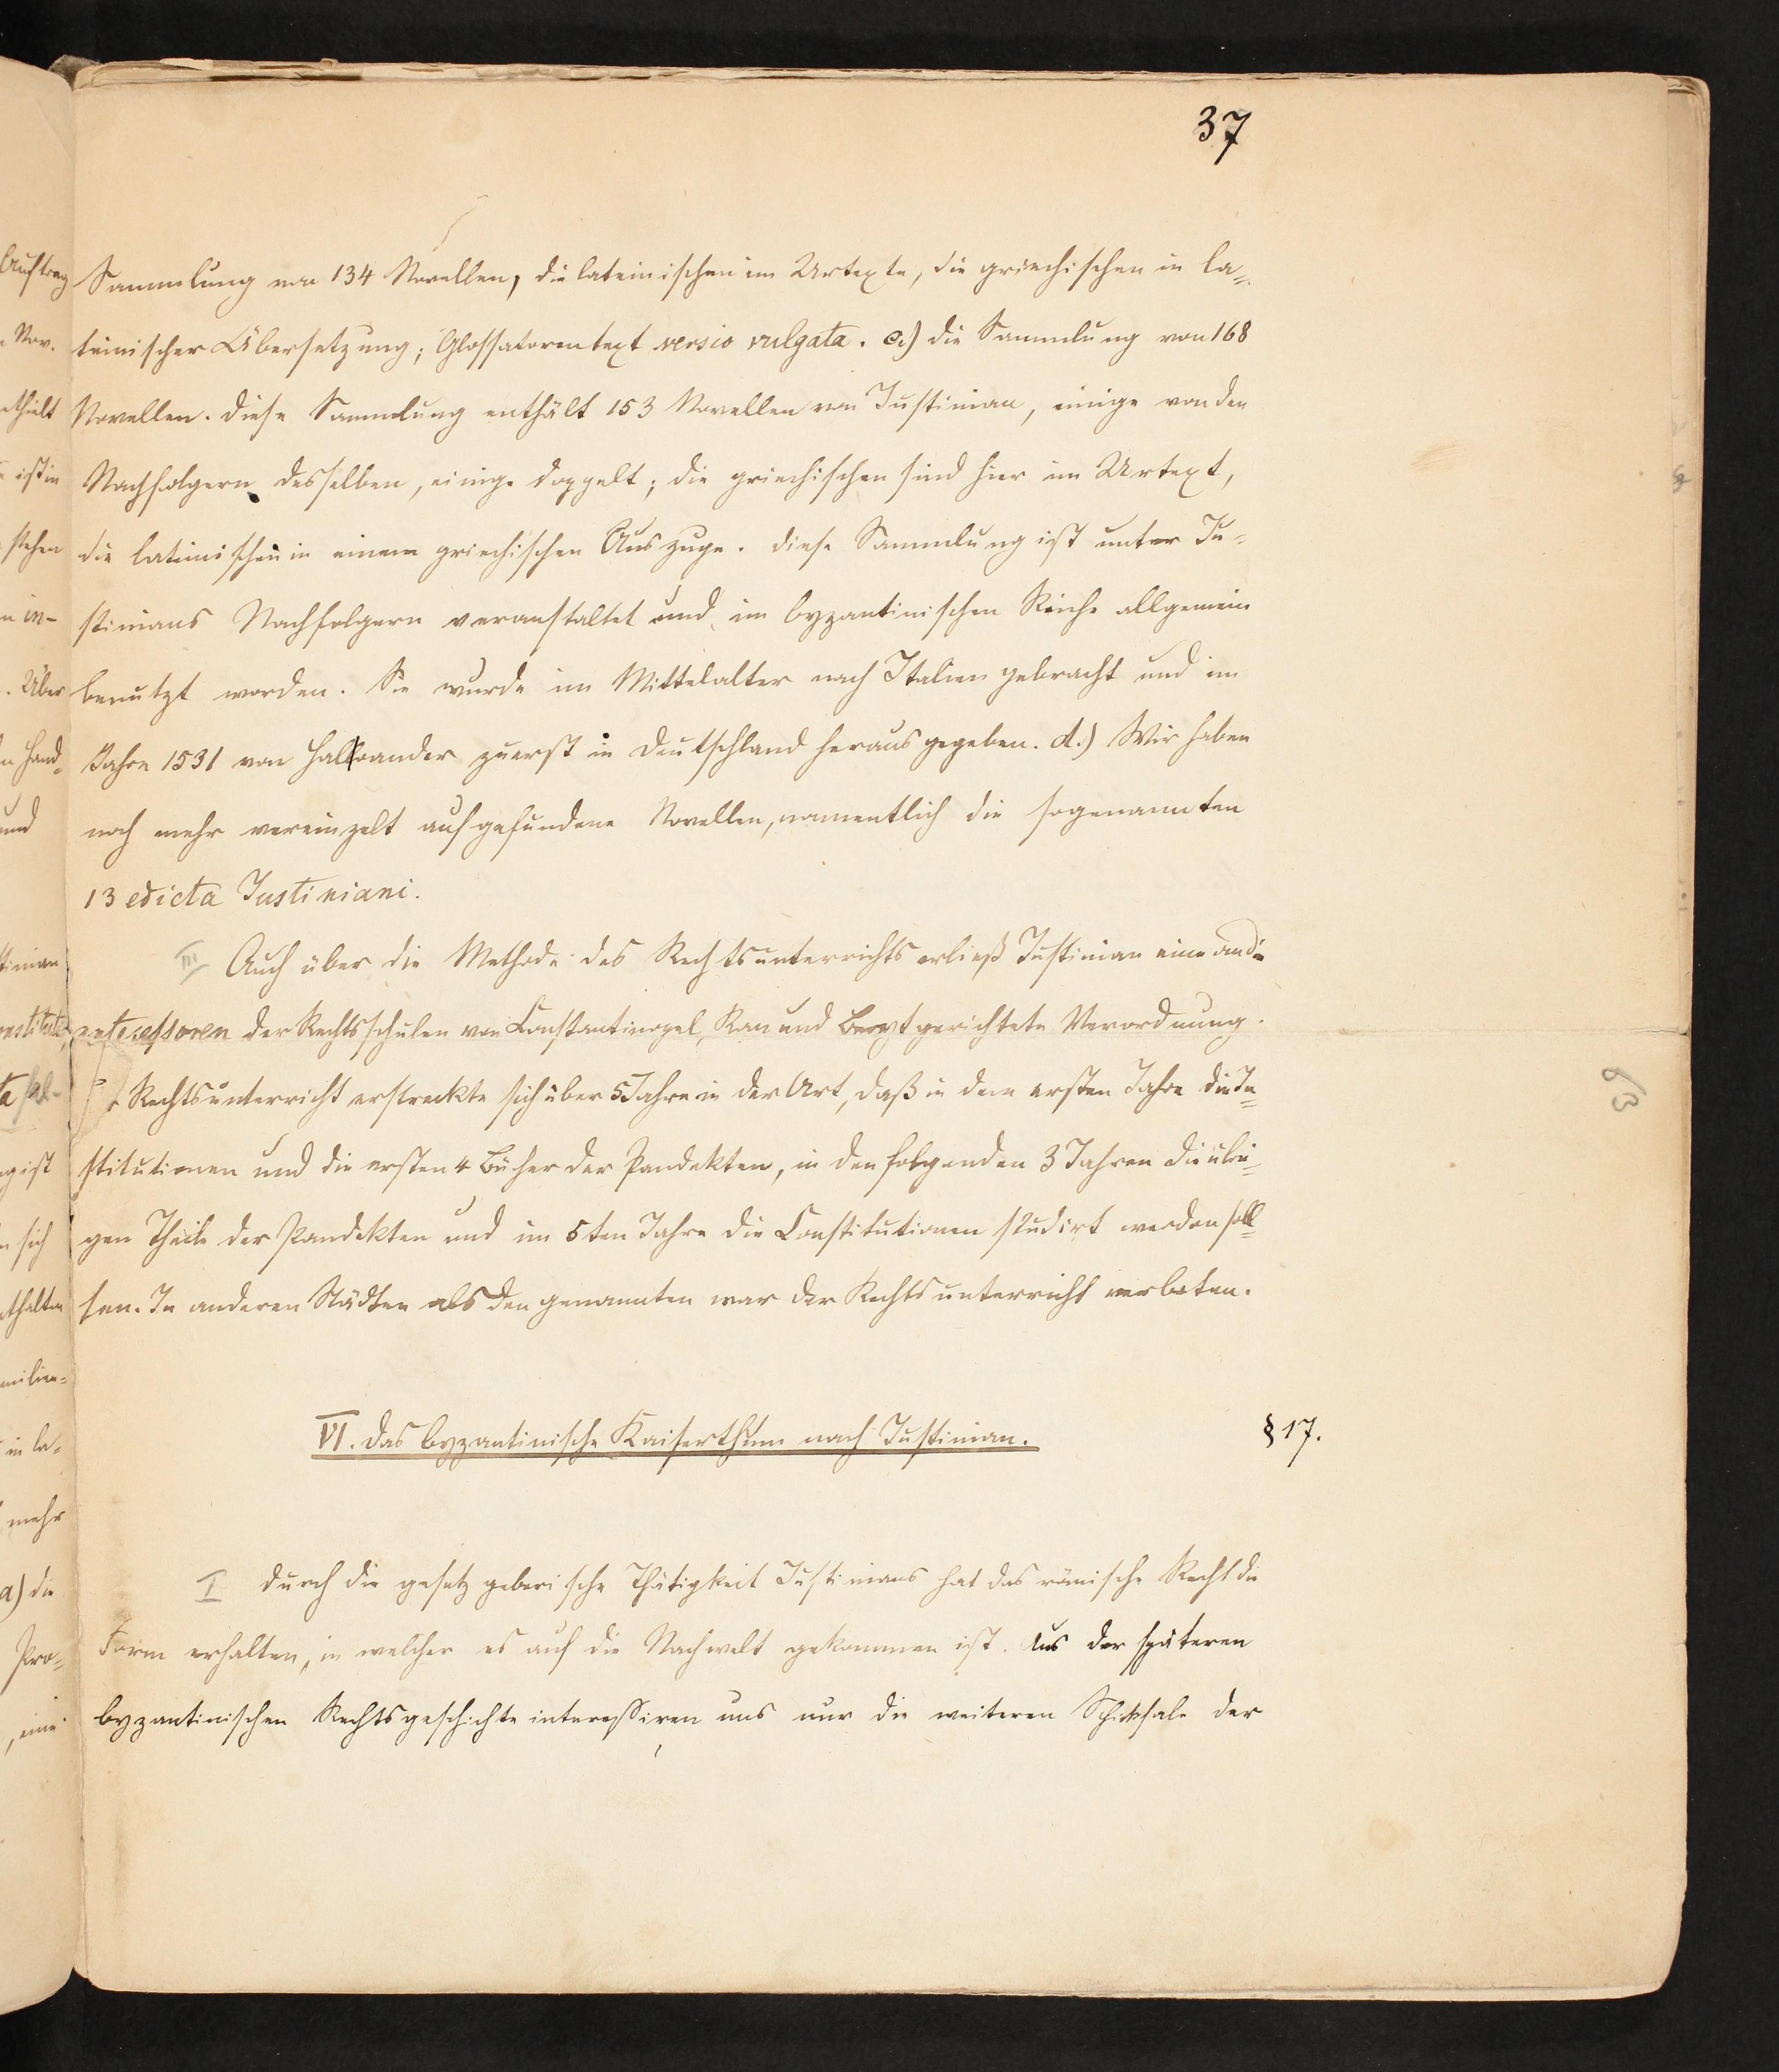 37
Sammlung von 134 Novellen, die lateinischen im Urtexte, die griechischen in la=
teinischer Übersetzung; Glossatorentext versio vulgata. c.) die Sammlung von 168
Novellen. Diese Sammlung enthält 153 Novellen von Justinian, einige von den
Nachfolgern desselben, einige doppelt; die griechischen sind hier im Urtext,
die lateinischen in einem griechischen Auszuge. Diese Sammlung ist unter Ju=
stinians Nachfolgern veranstaltet und im byzantinischen Reiche allgemein
benutzt worden. Sie wurde im Mittelalter nach Italien gebracht und im
Jahre 1531 von Haloander zuerst in Deutschland herausgegeben. d.) Wir haben
noch mehr vereinzelt aufgefundene Novellen, namentlich die sogenannten
13 edicta Justiniani.
III Auch über die Methode des Rechtsunterrichts erließ Justinian eine an die
antecessoren der Rechtsschulen von Constantinopel, Rom und Beryt gerichtete Verordnung.
Rechtsunterricht erstreckte sich über 5 Jahre in der Art, daß in dem ersten Jahre die In=
stitutionen und die ersten 4 Bücher der Pandekten, in den folgenden 3 Jahren die übri=
gen Theile der Pandekten und im 5ten Jahre die Constitutionen studirt werden soll=
ten. In anderen Städten als den genannten war der Rechtsunterricht verboten.
VI. Das byzantinische Kaiserthum nach Justinian.
§ 17.
I Durch die gesetzgeberische Thätigkeit Justinians hat das römische Recht die
Form erhalten, in welcher es auf die Nachwelt gekommen ist. Aus der späteren
byzantinischen Rechtsgeschichte interessiren uns nur die weiteren Schicksale der